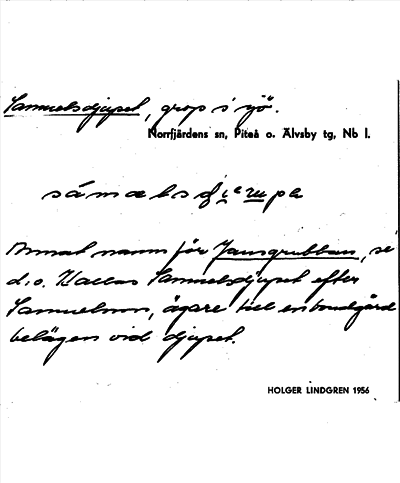 Samuelsdjupet, grop i sjö.
Norrfjärdens sn, Piteå o. Älvsby tg, Nb l.
Annat namn för Jansgrubban, se
d.o. Kallas Samuelsdjupet efter
Samuelsson, ägare till en bondgård
belägen vid djupet.
HOLGER LINDGREN 1956